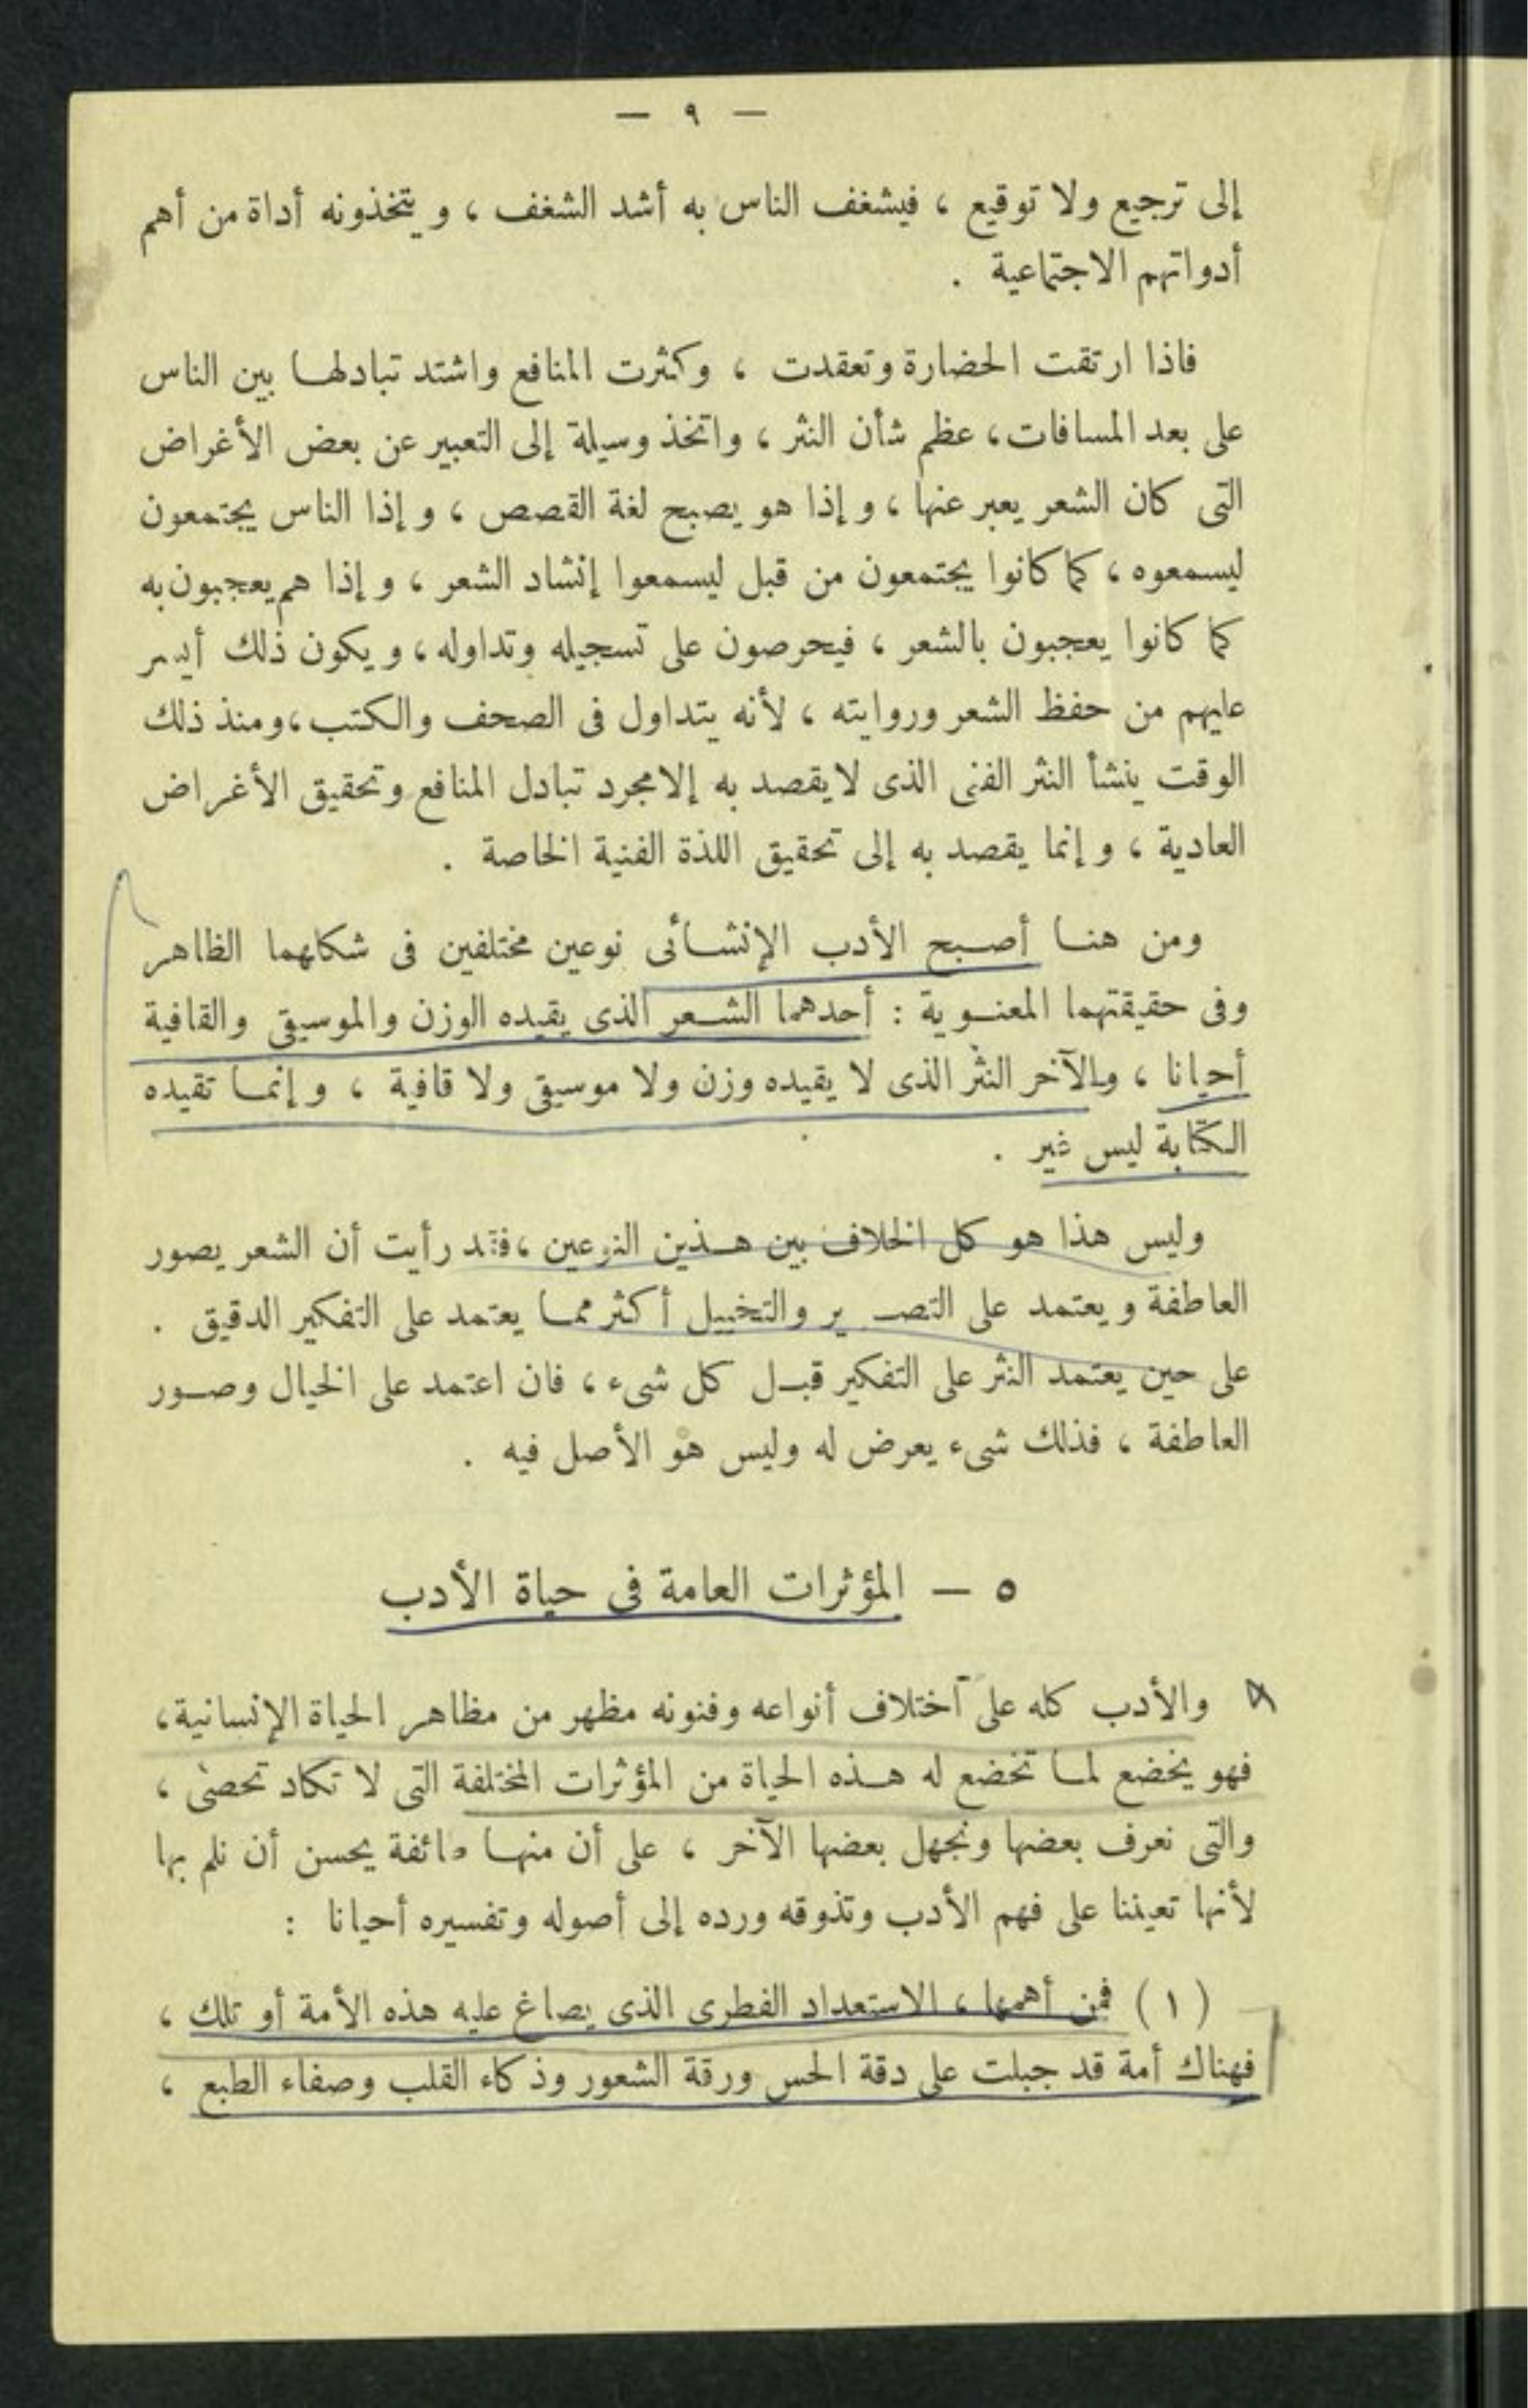 — ٩ —
إلى ترجيع ولا توقيع ، فيشغف الناس به أشد الشغف ، و يتخذونه أداة من أهم
أدواتهم الاجتماعية .
فاذا ارتقت الحضارة وتعقدت ، وكثرت المنافع واشتد تبادلها بين الناس
على بعد المسافات ، عظم شأن النثر ، واتخذ وسيلة إلى التعبير عن بعض الأغراض
التى كان الشعر يعبر عنها ، و إذا هو يصبح لغة القصص ، و إذا الناس يجتمعون
ليسمعوه ، كما كانوا يجتمعون من قبل ليسمعوا إنشاد الشعر ، و إذا هم يعجبون به
كما كانوا يعجبون بالشعر ، فيحرصون على تسجيله وتداوله ، و يكون ذلك أيسر
عليهم من حفظ الشعر وروايته ، لأنه يتداول فى الصحف والكتب ، ومنذ ذلك
الوقت ينشأ النثر الفنى الذى لا يقصد به إلا مجرد تبادل المنافع وتحقيق الأغراض
العادية ، و إنما يقصد به إلى تحقيق اللذة الفنية الخاصة .
ومن هنا أصبح الأدب الإنشائى نوعين مختلفين فى شكلهما الظاهر
وفى حقيقتهما المعنوية : أحدهما الشعر الذى يقيده الوزن والموسيقى والقافية
أحيانا ، والآخر النثر الذى لا يقيده وزن ولا موسيقى ولا قافية ، و إنما تقيده
الكتابة ليس غير .
وليس هذا هو كل الخلاف بين هذين النوعين ، فقد رأيت أن الشعر يصور
العاطفة و يعتمد على التصوير والتخييل أكثر مما يعتمد على التفكير الدقيق .
على حين يعتمد النثر على التفكير قبل كل شىء ، فان اعتمد على الخيال وصور
العاطفة ، فذلك شىء يعرض له وليس هو الأصل فيه .
٥ — المؤثرات العامة فى حياة الأدب
والأدب كله على اختلاف أنواعه وفنونه مظهر من مظاهر الحياة الإنسانية ،
فهو يخضع لما تخضع له هذه الحياة من المؤثرات المختلفة التى لا تكاد تحصى ،
والتى نعرف بعضها ونجهل بعضها الآخر ، على أن منها طائفة يحسن أن نلم بها
لأنها تعيننا على فهم الأدب وتذوقه ورده إلى أصوله وتفسيره أحيانا :
( ١ ) فمن أهمها ، الاستعداد الفطرى الذى يصاغ عليه هذه الأمة أو تلك ،
فهناك أمة قد جبلت على دقة الحس ورقة الشعور وذكاء القلب وصفاء الطبع ،